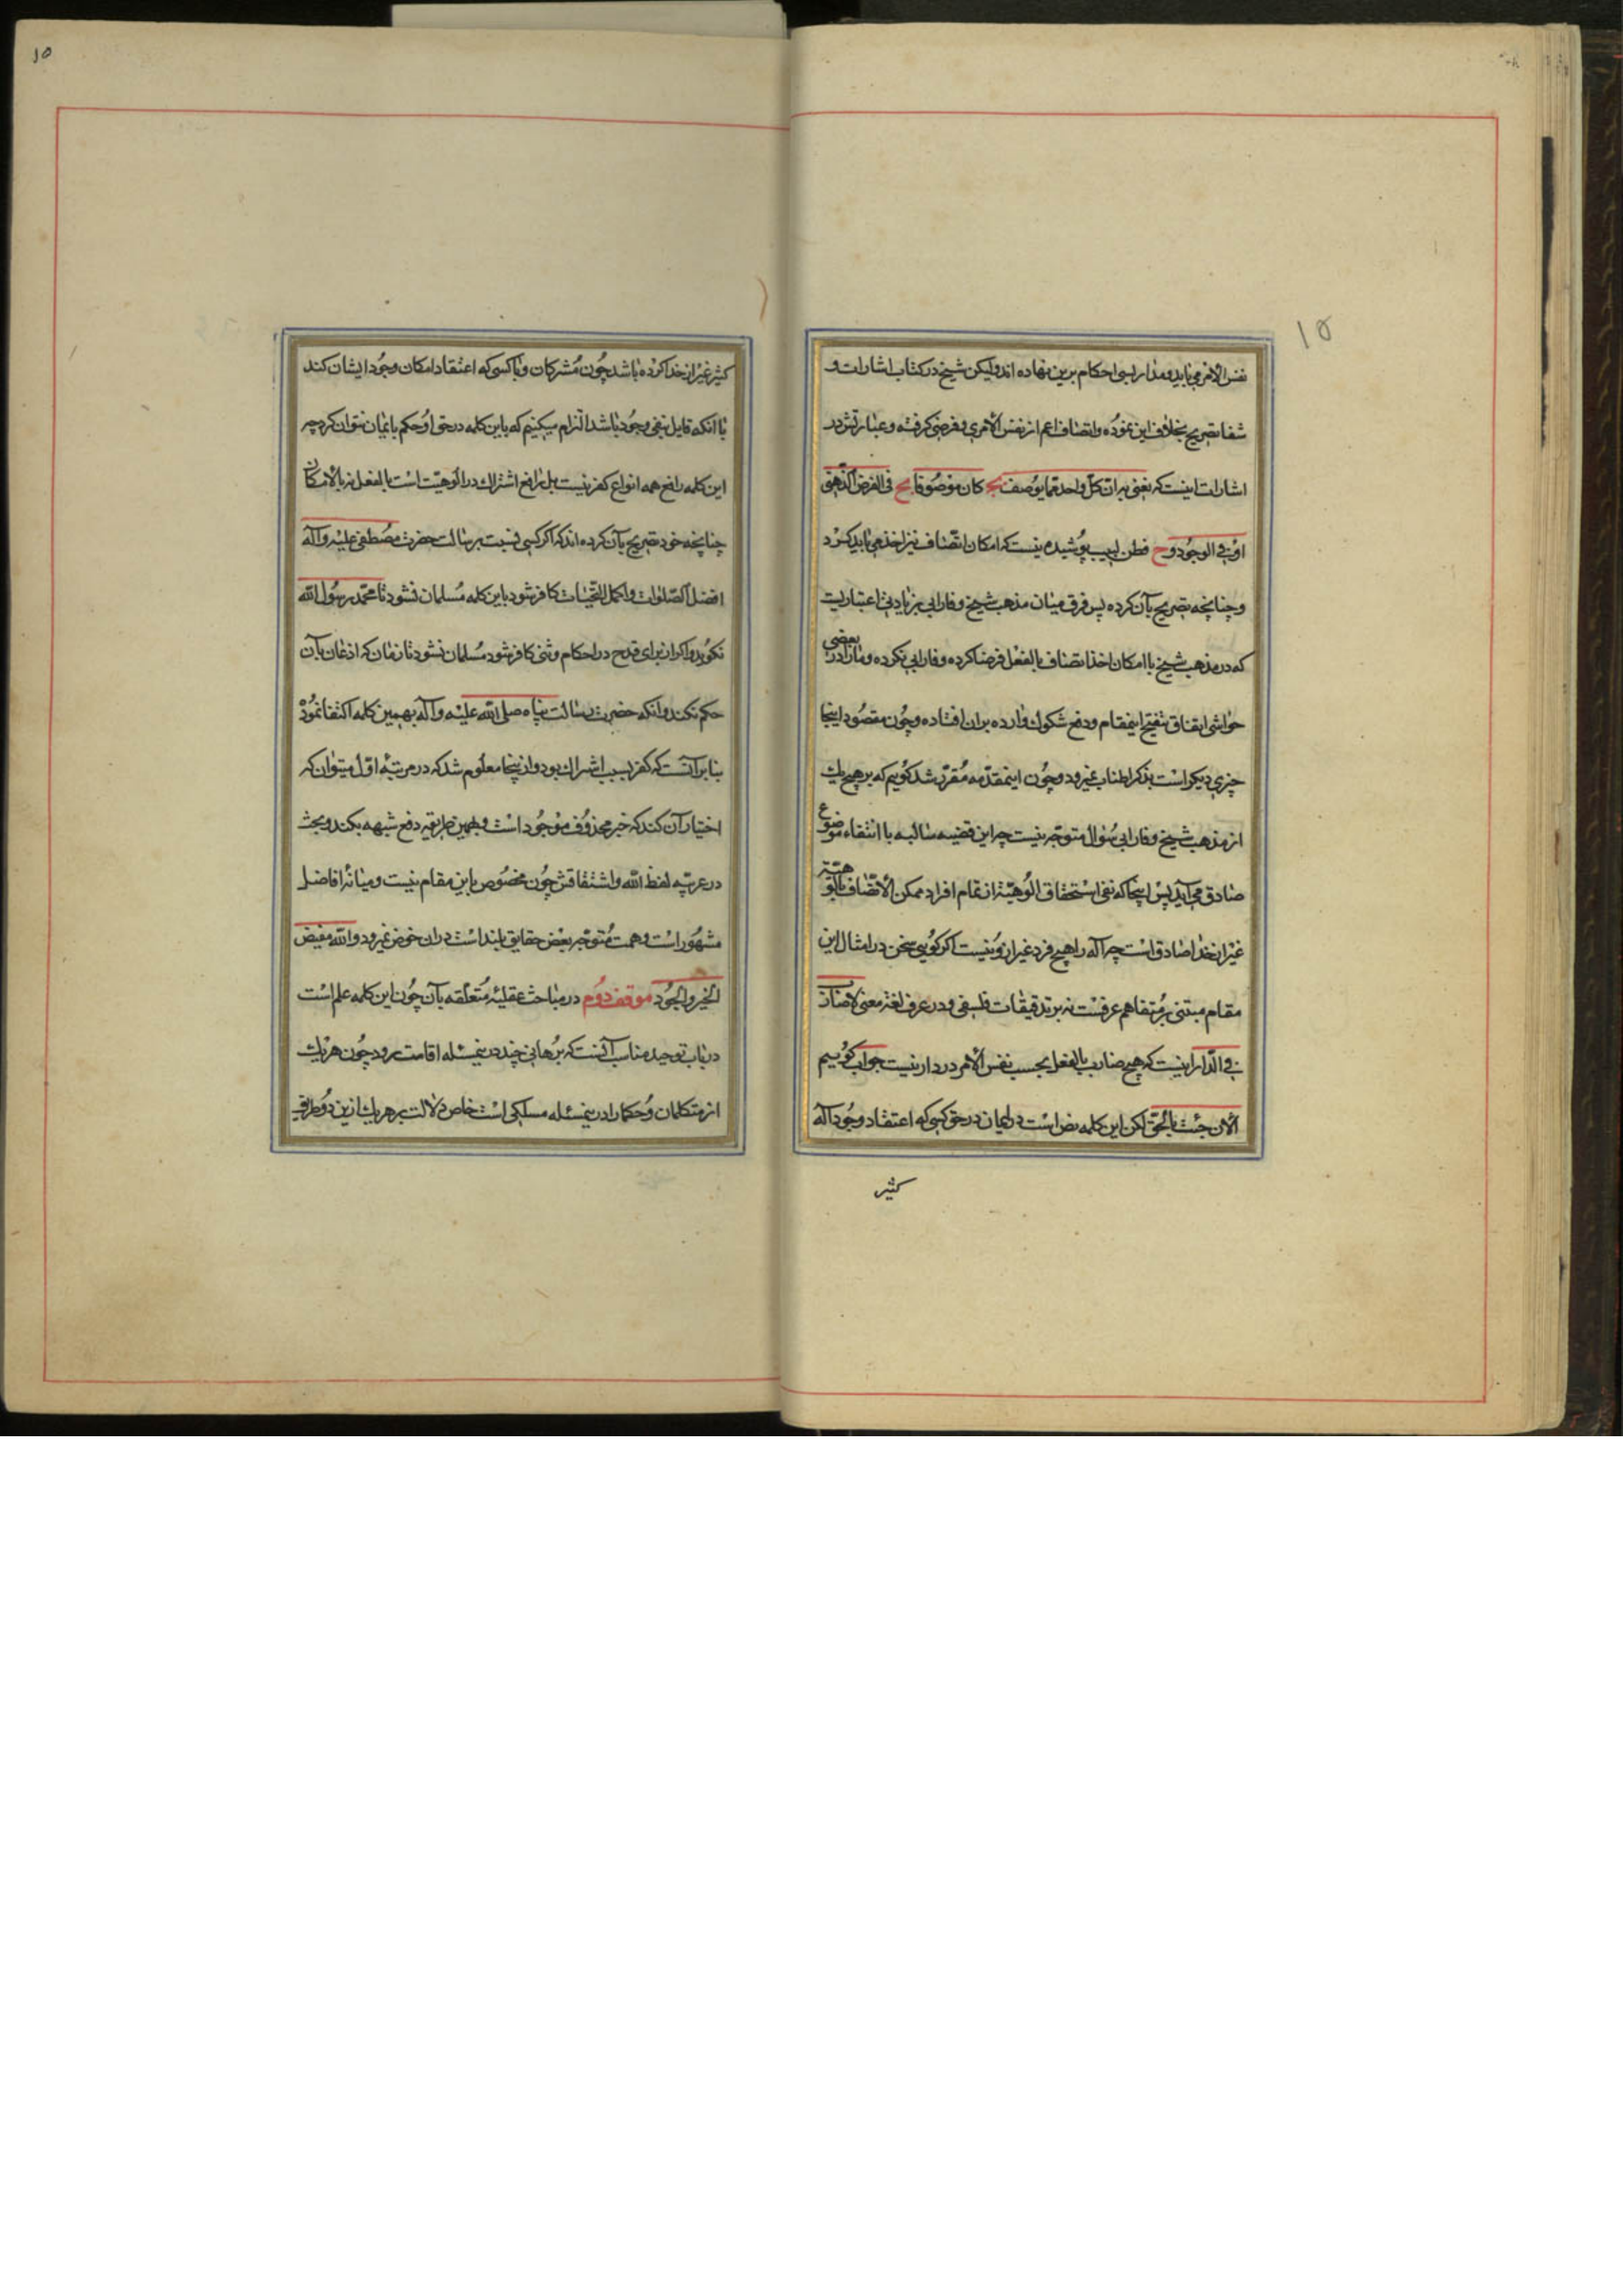 ۱۵
نفس الامر می باید و مدار بسی احکام برین نهاده اند ولیکن شیخ در کتاب اشارات و
شفا تصریح بخلاف این نموده و اتصاف اعم از نفس الامری و فرضی گرفته و عبارتش در
اشارات اینست که نعنی به ان کل واحد مما یوصف بج کان موصوفا بج فی الفرض الذهنی
او فی الوجود وح فطن لبیب پوشیده نیست که امکان اتصاف نیز اخذ می باید کرد
و چنانچه تصریح بآن کرده پس فرق میان مذهب شیخ و فارابی بزیادتی اعتباریست
که در مذهب شیخ با امکان اخذ اتصاف بالفعل فرضا کرده و فارابی نکرده و ما را در بعضی
حواشی اتفاق تنقیح اینمقام و دفع شکوک وارده بران افتاده و چون مقصود اینجا
چیزی دیکر است بذکر اطناب نمیرود و چون اینمقدمه مقرر شد کوییم که بر هیچ یک
از مذهب شیخ و فارابی سؤال متوجه نیست چه این قضیه سالبه با انتفاء موضوع
صادق می آید پس اینجا که نفی استحقاق الوهیة از تمام افراد ممکن الاتصاف بالوهیة
غیر از خدا صادق است چه اله را هیچ فرد غیر ازو نیست اکر کویی سخن در امثال این
مقام مبتنی بر متفاهم عرفست نه بر تدقیقات فلسفی و در عرف لغة معنی لا ضارب
فی الدار اینست که هیچ ضارب بالفعل بحسب نفس الامر در دار نیست جواب کوییم
الان جئت بالحق لکن این کلمه نص است در ایمان در حق کسی که اعتقاد وجود آله
کثیر
۱۵
کثیر غیر از خدا کرده باشد چون مشرکان و با کسی که اعتقاد امکان وجود ایشان کند
با آنکه قایل بنفی وجود باشد التزام میکنیم که باین کلمه در حق او حکم بایمان نتوان کرد چه
این کلمه رافع همه انواع کفر نیست بل رافع اشتراک در الوهیت است بالفعل نه بالامکان
چنانچه خود تصریح بآن کرده اند که اکر کسی نسبت برسالت حضرت مصطفی علیه وآله
افضل الصلوات و اکمل التحیات کافر شود باین کلمه مسلمان نشود تا محمد رسول الله
نکوید و اکر از برای قدح در احکام وثنی کافر شود مسلمان نشود تا زمان که اذعان بآن
حکم نکند و انکه حضرت رسالت پناه صلی الله علیه وآله بهمین کلمه اکتفا نمود
بنابر آنست که کفر بسبب اشراک بود و از ینجا معلوم شد که در مرتبه اول میتوان که
اختیار آن کند که خبر محذوف موجود است و بهمین طریقه دفع شبهه بکند و بحث
در عربیه لفظ الله و اشتقاقش چون مخصوص باین مقام نیست و میانه افاضل
مشهور است و همت متوجه بعض حقایق بلند است دران خوض نمیرود والله مفیض
الخیر والجود موقف دوم در مباحث عقلیه متعلقه بآن چون این کلمه علم است
در باب توحید مناسب آنست که برهانی چند در ینمسئله اقامت رود چون هر یک
از متکلمان و حکما را در ینمسئله مسلکی است خاص دلالت بر هر یک ازین دو طریق